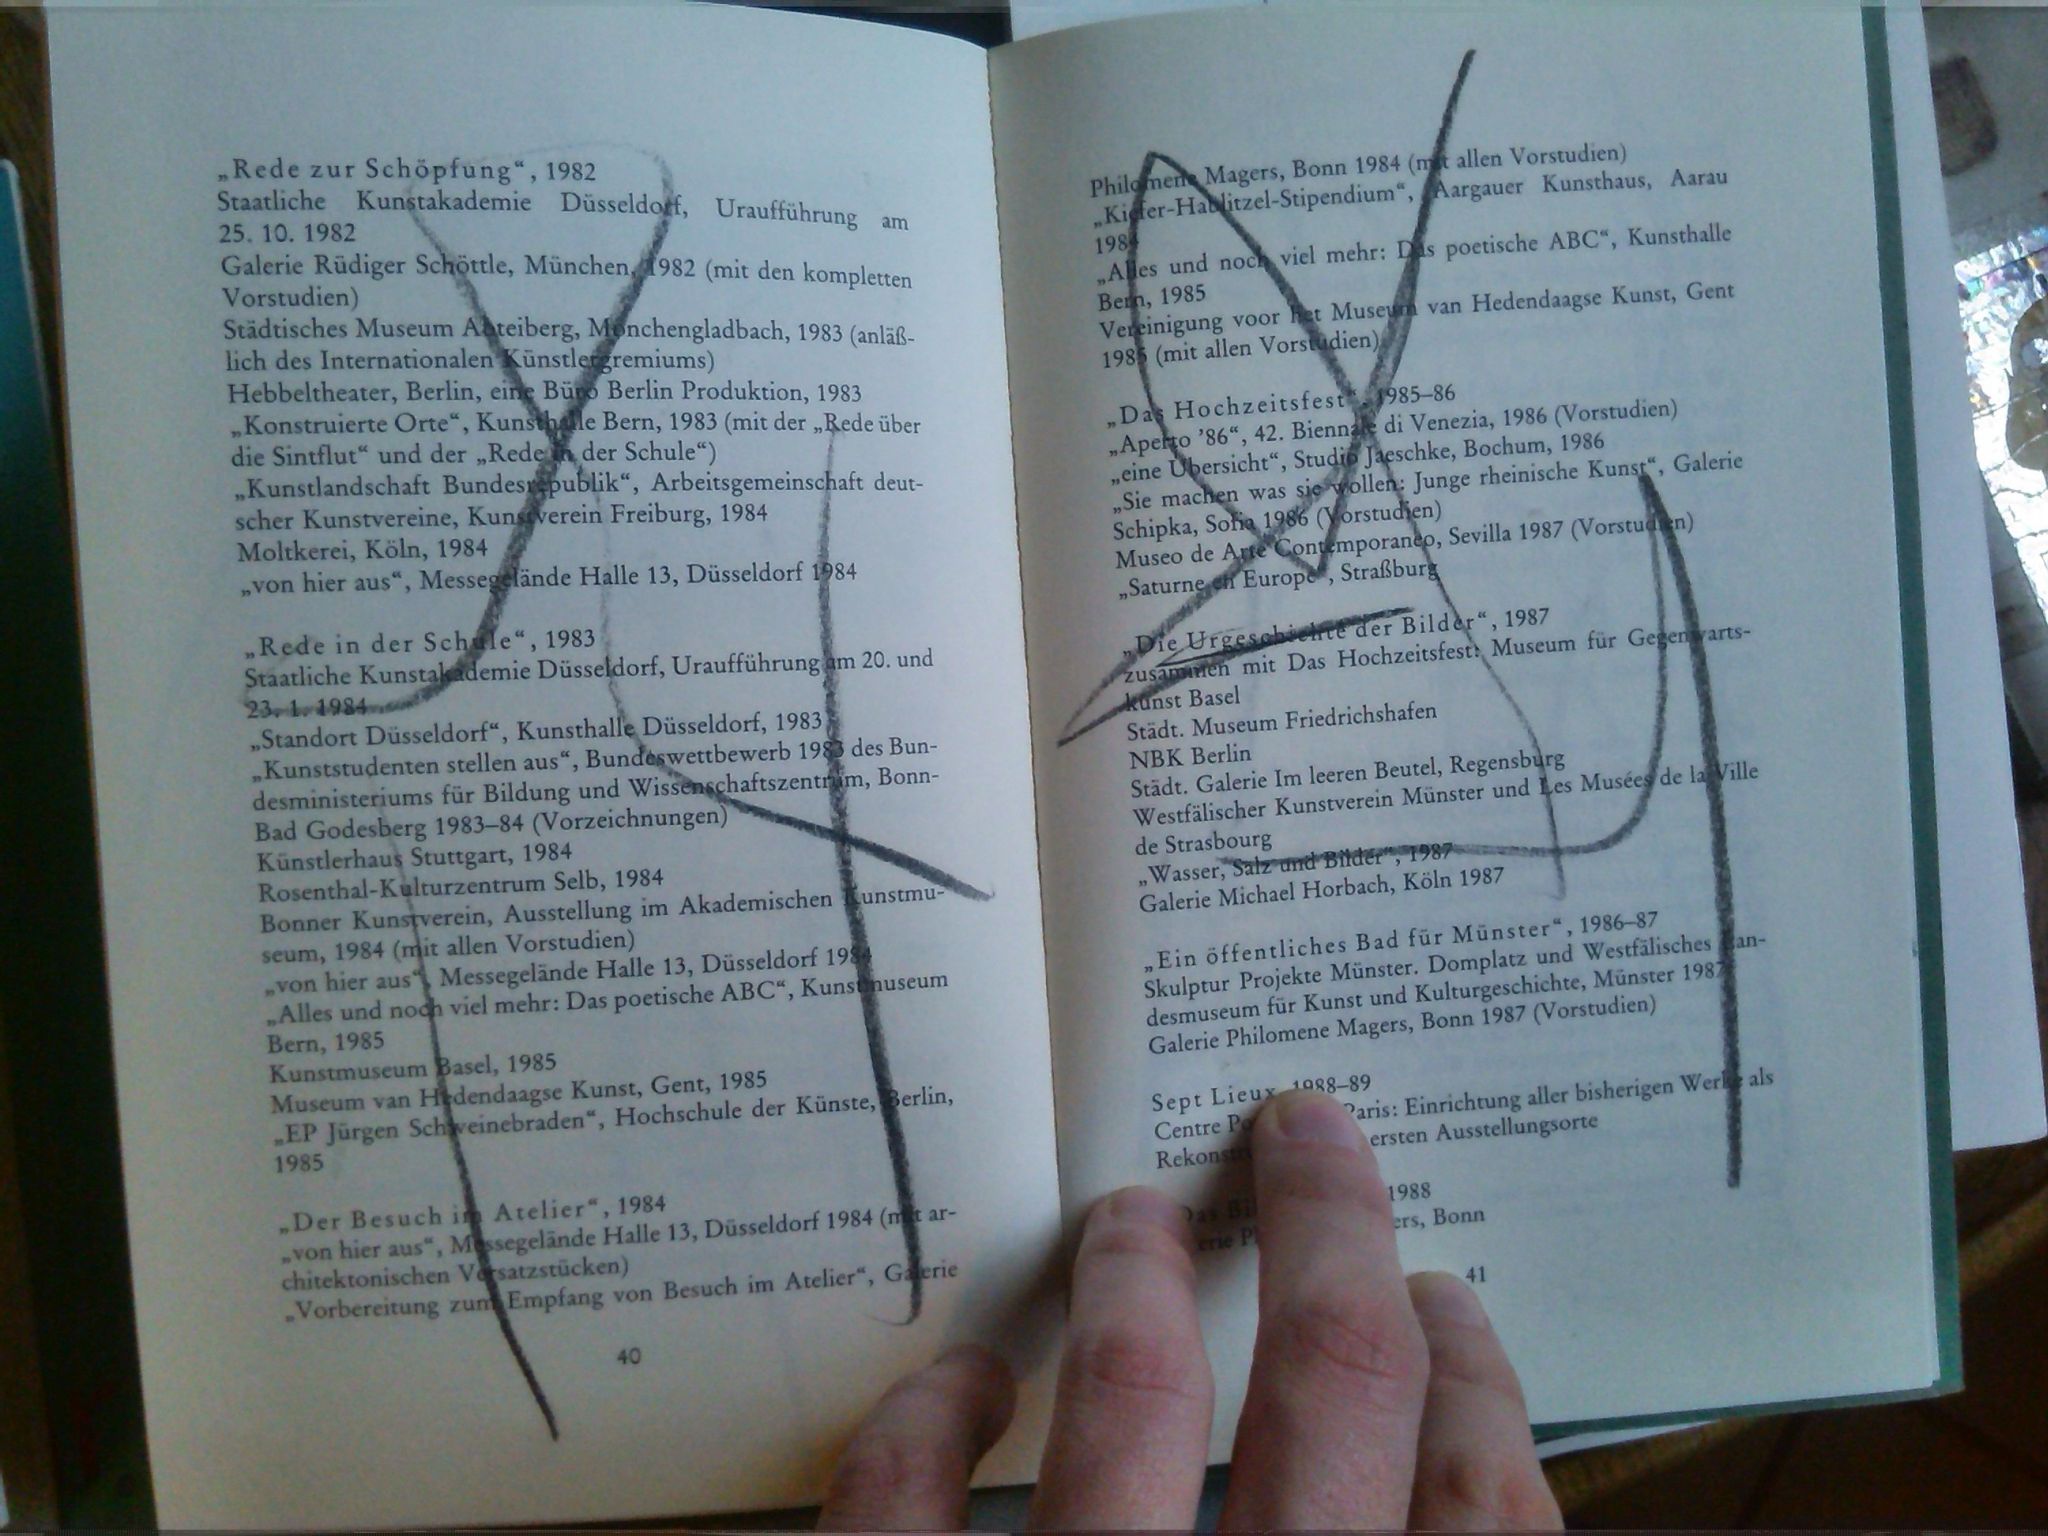 „Rede zur Schöpfung“, 1982
Staatliche Kunstakademie Düsseldorf, Uraufführung am
25. 10. 1982
Galerie Rüdiger Schöttle, München, 1982 (mit den kompletten
Vorstudien)
Städtisches Museum Abteiberg, Mönchengladbach, 1983 (anläß-
lich des Internationalen Künstlergremiums)
Hebbeltheater, Berlin, eine Büro Berlin Produktion, 1983
„Konstruierte Orte“, Kunsthalle Bern, 1983 (mit der „Rede über
die Sintflut“ und der „Rede in der Schule“)
„Kunstlandschaft Bundesrepublik“, Arbeitsgemeinschaft deut-
scher Kunstvereine, Kunstverein Freiburg, 1984
Moltkerei, Köln, 1984
„von hier aus“, Messegelände Halle 13, Düsseldorf 1984
„Rede in der Schule“, 1983
Staatliche Kunstakademie Düsseldorf, Uraufführung am 20. und
23. 1. 1984
„Standort Düsseldorf“, Kunsthalle Düsseldorf, 1983
„Kunststudenten stellen aus“, Bundeswettbewerb 1983 des Bun-
desministeriums für Bildung und Wissenschaftszentrum, Bonn-
Bad Godesberg 1983–84 (Vorzeichnungen)
Künstlerhaus Stuttgart, 1984
Rosenthal-Kulturzentrum Selb, 1984
Bonner Kunstverein, Ausstellung im Akademischen Kunstmu-
seum, 1984 (mit allen Vorstudien)
„von hier aus“, Messegelände Halle 13, Düsseldorf 1984
„Alles und noch viel mehr: Das poetische ABC“, Kunstmuseum
Bern, 1985
Kunstmuseum Basel, 1985
Museum van Hedendaagse Kunst, Gent, 1985
„EP Jürgen Schweinebraden“, Hochschule der Künste, Berlin,
1985
„Der Besuch im Atelier“, 1984
„von hier aus“, Messegelände Halle 13, Düsseldorf 1984 (mit ar-
chitektonischen Versatzstücken)
„Vorbereitung zum Empfang von Besuch im Atelier“, Galerie
40
Philomene Magers, Bonn 1984 (mit allen Vorstudien)
„Kiefer-Hablitzel-Stipendium“, Aargauer Kunsthaus, Aarau
1984
„Alles und noch viel mehr: Das poetische ABC“, Kunsthalle
Bern, 1985
Vereinigung voor het Museum van Hedendaagse Kunst, Gent
1985 (mit allen Vorstudien)
„Das Hochzeitsfest“, 1985–86
„Aperto ’86“, 42. Biennale di Venezia, 1986 (Vorstudien)
„eine Übersicht“, Studio Jaeschke, Bochum, 1986
„Sie machen was sie wollen: Junge rheinische Kunst“, Galerie
Schipka, Sofia 1986 (Vorstudien)
Museo de Arte Contemporaneo, Sevilla 1987 (Vorstudien)
„Saturne en Europe“, Straßburg
„Die Urgeschichte der Bilder“, 1987
zusammen mit Das Hochzeitsfest: Museum für Gegenwarts-
kunst Basel
Städt. Museum Friedrichshafen
NBK Berlin
Städt. Galerie Im leeren Beutel, Regensburg
Westfälischer Kunstverein Münster und Les Musées de la Ville
de Strasbourg
„Wasser, Salz und Bilder“, 1987
Galerie Michael Horbach, Köln 1987
„Ein öffentliches Bad für Münster“, 1986–87
Skulptur Projekte Münster. Domplatz und Westfälisches Lan-
desmuseum für Kunst und Kulturgeschichte, Münster 1987
Galerie Philomene Magers, Bonn 1987 (Vorstudien)
Sept Lieux, 1988–89
Centre Paris: Einrichtung aller bisherigen Werke als
ersten Ausstellungsorte
Das 1988
Bonn
41